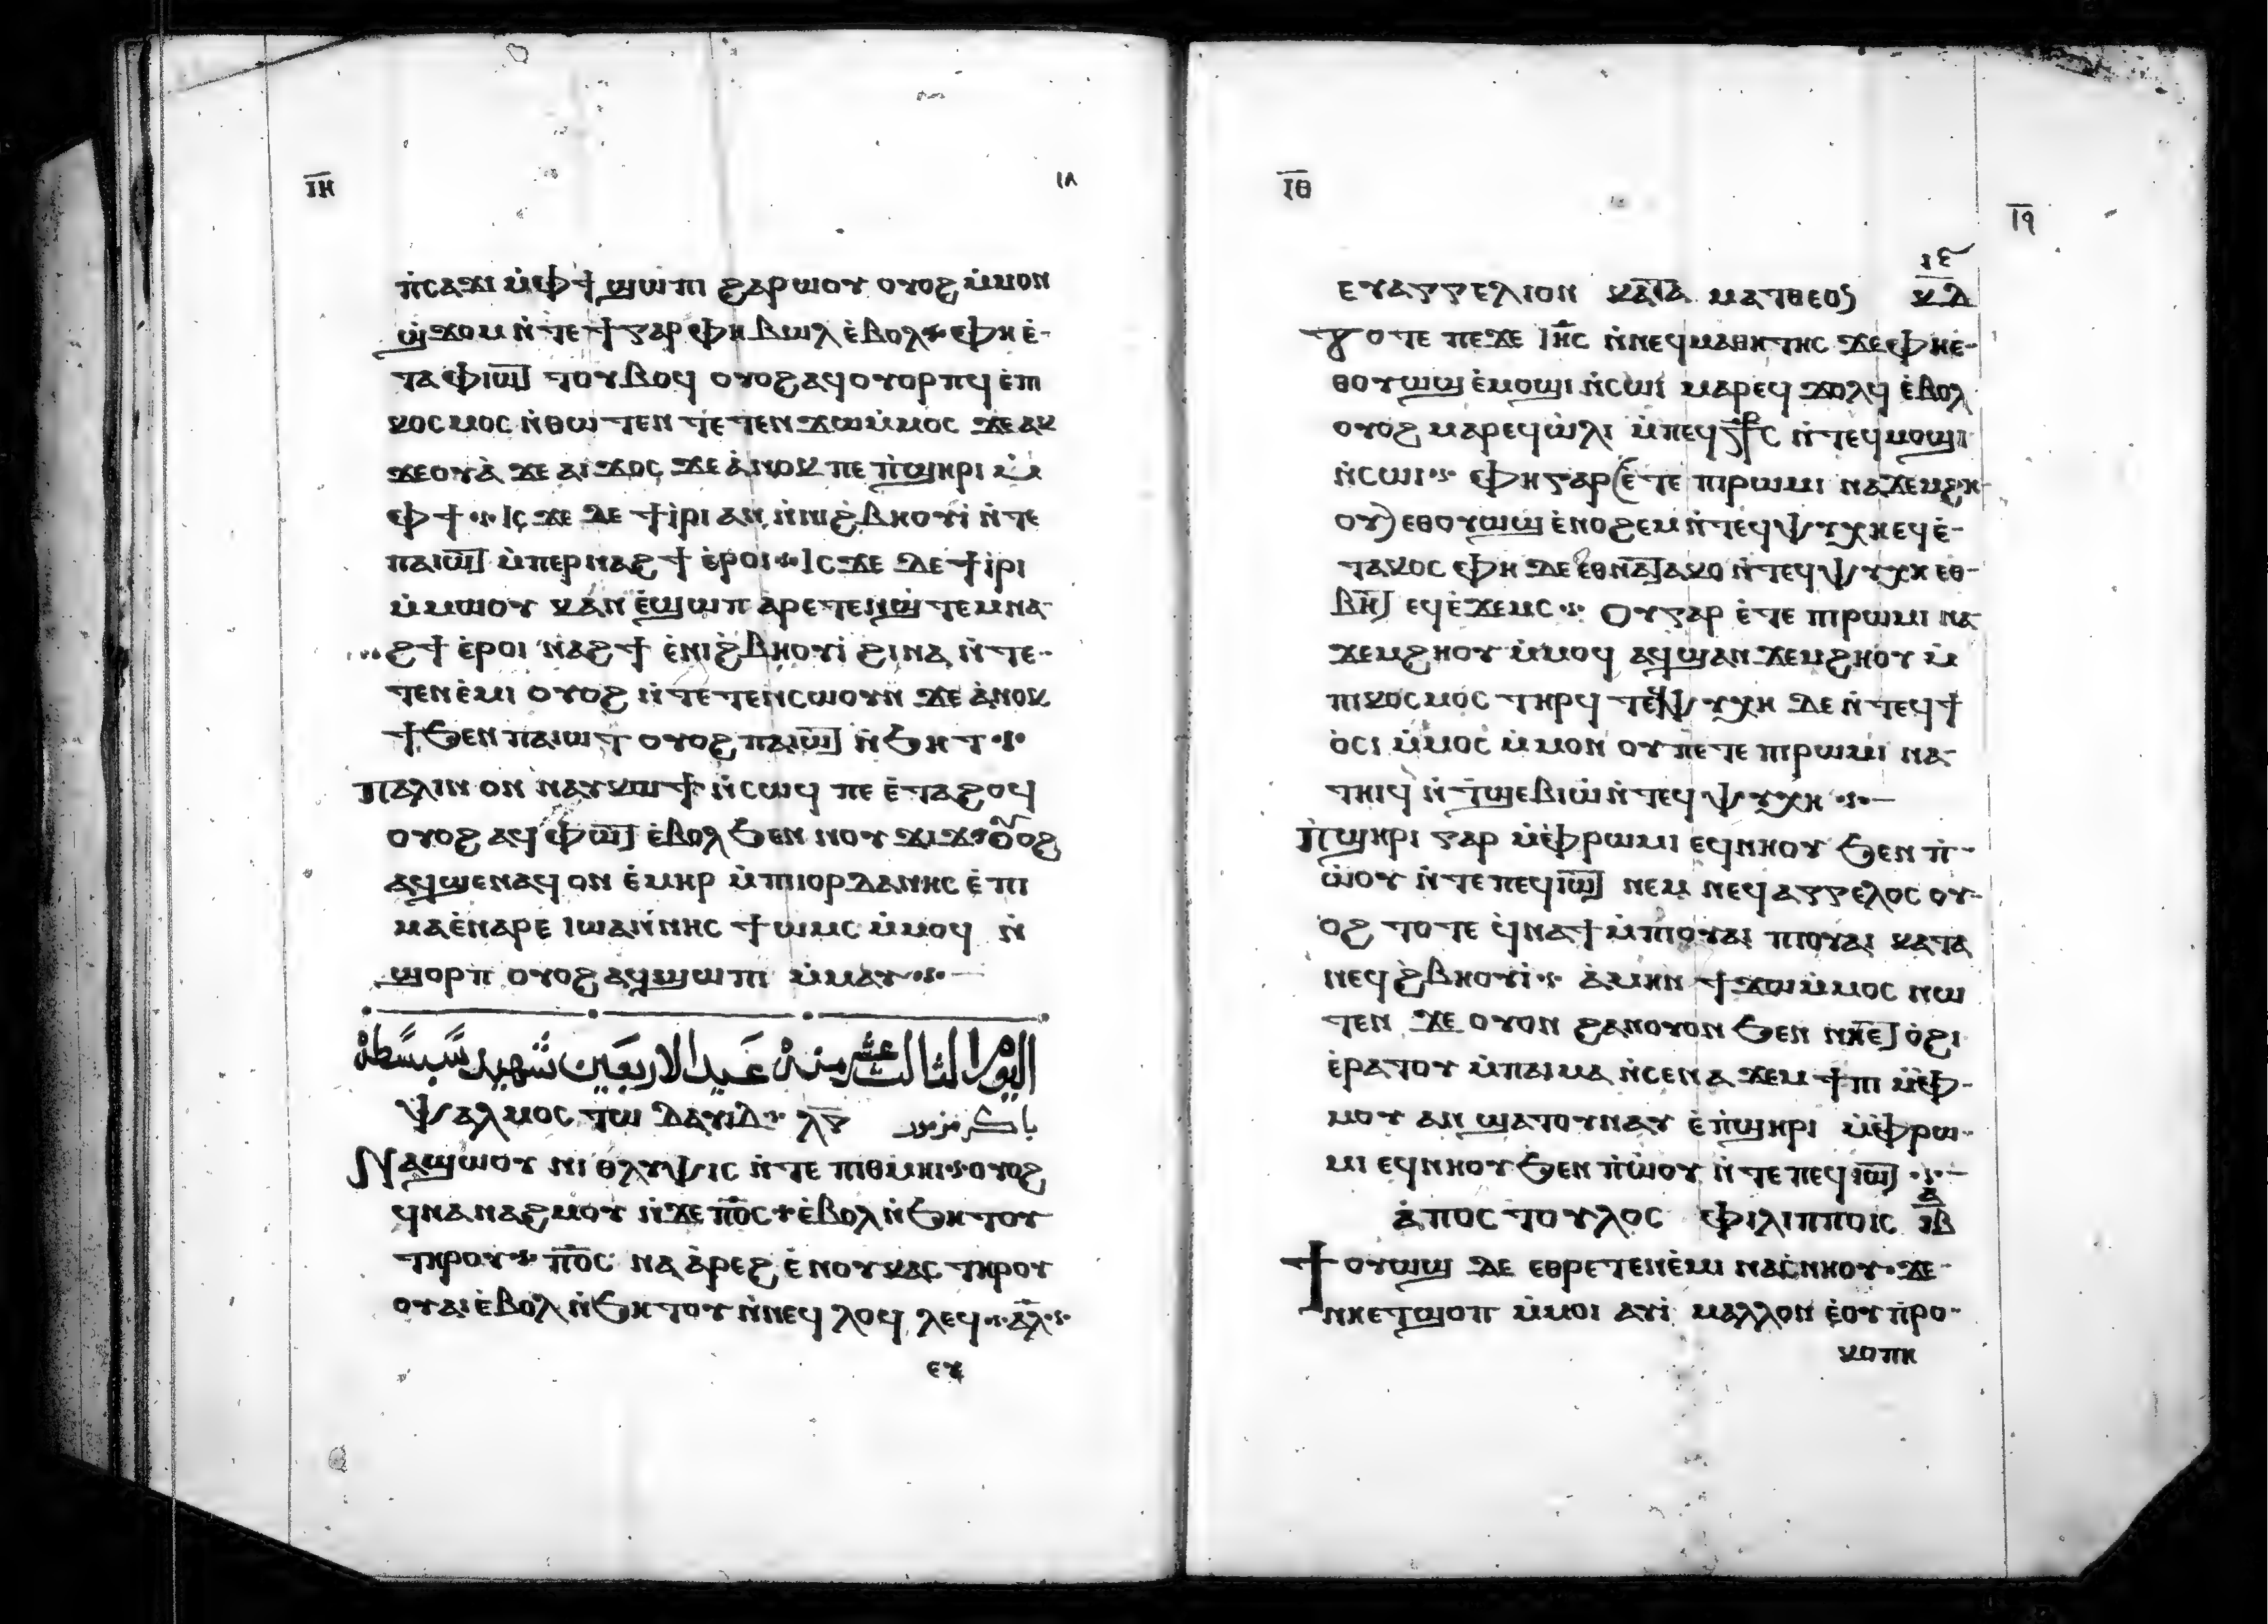 ⲓ̅ⲏ̅
ⲡ̇ⲥⲁϫⲓ ⲙ̇ⲫϯ ϣⲱⲡⲓ ϩⲁⲣⲱⲟⲩ ⲟⲩⲟϩ ⲙ̇ⲙⲟⲛ
ϣ̇ϫⲟⲙ ⲛ̇ⲧⲉ ϯⲅⲣⲁⲫⲏ ⲃⲱⲗ ⲉ̇ⲃⲟⲗ ⲫⲏ ⲉ̇-
ⲧⲁ ⲫⲓⲱ̅ⲧ̅ ⲧⲟⲩⲃⲟϥ ⲟⲩⲟϩ ⲁϥⲟⲩⲟⲣⲡϥ ⲉ̇ⲡⲓ
ⲕⲟⲥⲙⲟⲥ ⲛ̇ⲑⲱⲧⲉⲛ ⲧⲉⲧⲉⲛϫⲱ ⲙ̇ⲙⲟⲥ ϫⲉ ⲁⲕ
ϫⲉⲟⲩⲁ̇ ϫⲉ ⲁⲓϫⲟⲥ ϫⲉ ⲁ̇ⲛⲟⲕ ⲡⲉ ⲡ̇ϣⲏⲣⲓ ⲙ̇
ⲫϯ ⲓⲥϫⲉ ⲇⲉ ϯⲓ̇ⲣⲓ ⲁⲛ ⲛ̇ⲛⲓϩ̇ⲃⲏⲟⲩⲓ̇ ⲛ̇ⲧⲉ
ⲡⲁⲓⲱ̅ⲧ̅ ⲙ̇ⲡⲉⲣⲛⲁϩϯ ⲉ̇ⲣⲟⲓ ⲓⲥϫⲉ ⲇⲉ ϯⲓ̇ⲣⲓ
ⲙ̇ⲙⲱⲟⲩ ⲕⲁⲛ ⲉ̇ϣⲱⲡ ⲁⲣⲉⲧⲉⲛϣ̇ⲧⲉⲙⲛⲁ-
ϩϯ ⲉ̇ⲣⲟⲓ ⲛⲁϩϯ ⲉ̇ⲛⲓϩ̇ⲃⲏⲟⲩⲓ̇ ϩⲓⲛⲁ ⲛ̇ⲧⲉ-
ⲧⲉⲛⲉ̇ⲙⲓ ⲟⲩⲟϩ ⲛ̇ⲧⲉⲧⲉⲛⲥⲱⲟⲩⲛ ϫⲉ ⲁ̇ⲛⲟⲕ
ϯϧⲉⲛ ⲡⲁⲓⲱⲧ ⲟⲩⲟϩ ⲡⲁⲓⲱ̅ⲧ̅ ⲛ̇ϧⲏⲧ
ⲡⲁⲗⲓⲛ ⲟⲛ ⲛⲁⲩⲕⲱϯ ⲛ̇ⲥⲱϥ ⲡⲉ ⲉ̇ⲧⲁϩⲟϥ
ⲟⲩⲟϩ ⲁϥⲫⲱ̅ⲧ̅ ⲉ̇ⲃⲟⲗ ϧⲉⲛ ⲛⲟⲩϫⲓϫ ⲟⲩⲟϩ
ⲁϥϣⲉⲛⲁϥ ⲟⲛ ⲉ̇ⲙⲏⲣ ⲙ̇ⲡⲓⲓⲟⲣⲇⲁⲛⲏⲥ ⲉ̇ⲡⲓ
ⲙⲁ ⲉ̇ⲛⲁⲣⲉ ⲓⲱⲁⲛⲛⲏⲥ ϯⲱⲙⲥ ⲙ̇ⲙⲟϥ ⲛ̇
ϣⲟⲣⲡ ⲟⲩⲟϩ ⲁϥϣⲱⲡⲓ ⲙ̇ⲙⲁⲩ
اليوم الثالث عشر منه عيد الاربعين شهيد بسبسطه
ⲯⲁⲗⲙⲟⲥ ⲧⲱ ⲇⲁⲩⲓⲇ ⲗ̅ⲅ̅ باكر مزمور
ⲛⲁϣⲱⲟⲩ ⲛⲓⲑⲗⲩⲯⲓⲥ ⲛ̇ⲧⲉ ⲡⲓⲑⲙ̇ⲏⲓ ⲟⲩⲟϩ
ϥⲛⲁⲛⲁϩⲙⲟⲩ ⲛ̇ϫⲉ ⲡ̅ⲟ̅ⲥ̅ ⲉ̇ⲃⲟⲗ ⲛ̇ϧⲏⲧⲟⲩ
ⲧⲏⲣⲟⲩ ⲡ̅ⲟ̅ⲥ̅ ⲛⲁⲁ̇ⲣⲉϩ ⲉ̇ⲛⲟⲩⲕⲁⲥ ⲧⲏⲣⲟⲩ
ⲟⲩⲁⲓ ⲉ̇ⲃⲟⲗ ⲛ̇ϧⲏⲧⲟⲩ ⲛ̇ⲛⲉϥⲗⲟϥⲗⲉϥ ⲁ̅ⲗ̅
ⲉⲩ
ⲓ̅ⲑ̅
ⲉⲩⲁⲅⲅⲉⲗⲓⲟⲛ ⲕⲁⲧⲁ ⲙⲁⲧⲑⲉⲟⲥ ⲕ̅ⲇ̅
ⲧⲟⲧⲉ ⲡⲉϫⲉ ⲓⲏ̅ⲥ ⲛ̇ⲛⲉϥⲙⲁⲑⲏⲧⲏⲥ ϫⲉ ⲫⲏⲉ̇-
ⲑⲟⲩⲱϣ ⲉ̇ⲙⲟϣⲓ ⲛ̇ⲥⲱⲓ̇ ⲙⲁⲣⲉϥϫⲟⲗϥ ⲉ̇ⲃⲟⲗ
ⲟⲩⲟϩ ⲙⲁⲣⲉϥⲱ̇ⲗⲓ ⲙ̇ⲡⲉϥⲥ⳨ⲥ ⲛ̇ⲧⲉϥⲙⲟϣⲓ
ⲛ̇ⲥⲱⲓ ⲫⲏ ⲅⲁⲣ (ⲉ̇ⲧⲉ ⲡⲓⲣⲱⲙⲓ ⲛⲁϫⲉⲙϩⲏ-
ⲟⲩ) ⲉⲑⲟⲩⲱϣ ⲉ̇ⲛⲟϩⲉⲙ ⲛ̇ⲧⲉϥⲯⲩⲭⲏ ⲉϥⲉ̇-
ⲧⲁⲕⲟⲥ ⲫⲏ ⲇⲉ ⲉⲑⲛⲁⲧⲁⲕⲟ ⲛ̇ⲧⲉϥⲯⲩⲭⲏ ⲉⲑ-
ⲃⲏ̅ⲧ̅ ⲉϥⲉ̇ϫⲉⲙⲥ ⲟⲩ ⲅⲁⲣ ⲉ̇ⲧⲉ ⲡⲓⲣⲱⲙⲓ ⲛⲁ
ϫⲉⲙϩⲏⲟⲩ ⲙ̇ⲙⲟϥ ⲁϥϣⲁⲛϫⲉⲙϩⲏⲟⲩ ⲙ̇
ⲡⲓⲕⲟⲥⲙⲟⲥ ⲧⲏⲣϥ ⲧⲉϥⲯⲩⲭⲏ ⲇⲉ ⲛ̇ⲧⲉϥϯ
ⲟ̇ⲥⲓ ⲙ̇ⲙⲟⲥ ⲙ̇ⲙⲟⲛ ⲟⲩ ⲡⲉⲧⲉ ⲡⲓⲣⲱⲙⲓ ⲛⲁ-
ⲧⲏⲓϥ ⲛ̇ⲧ̇ϣⲉⲃⲓⲱ̇ ⲛ̇ⲧⲉϥⲯⲩⲭⲏ
ⲡ̇ϣⲏⲣⲓ ⲅⲁⲣ ⲙ̇ⲫ̇ⲣⲱⲙⲓ ⲉϥⲛⲏⲟⲩ ϧⲉⲛ ⲡ̇-
ⲱ̇ⲟⲩ ⲛ̇ⲧⲉ ⲡⲉϥⲓⲱ̅ⲧ̅ ⲛⲉⲙ ⲛⲉϥⲁⲅⲅⲉⲗⲟⲥ ⲟⲩ-
ⲟϩ ⲧⲟⲧⲉ ϥ̇ⲛⲁϯ ⲙ̇ⲡⲓⲟⲩⲁⲓ ⲡⲓⲟⲩⲁⲓ ⲕⲁⲧⲁ
ⲛⲉϥϩ̇ⲃⲏⲟⲩⲓ̇ ⲁ̇ⲙⲏⲛ ϯϫⲱ ⲙ̇ⲙⲟⲥ ⲛⲱ
ⲧⲉⲛ ϫⲉ ⲟⲩⲟⲛ ϩⲁⲛⲟⲩⲟⲛ ϧⲉⲛ ⲛⲏⲉ̅ⲧ̅ ⲟ̇ϩⲓ
ⲉ̇ⲣⲁⲧⲟⲩ ⲙ̇ⲡⲁⲓⲙⲁ ⲛ̇ⲥⲉⲛⲁϫⲉⲙϯⲡⲓ ⲙ̇ⲫ̇-
ⲙⲟⲩ ⲁⲛ ϣⲁⲧⲟⲩⲛⲁⲩ ⲉ̇ⲡ̇ϣⲏⲣⲓ ⲙ̇ⲫ̇ⲣⲱ-
ⲙⲓ ⲉϥⲛⲏⲟⲩ ϧⲉⲛ ⲡ̇ⲱ̇ⲟⲩ ⲛ̇ⲧⲉ ⲡⲉϥⲓⲱ̅ⲧ̅
ⲁ̇ⲡⲟⲥⲧⲟⲩⲗⲟⲥ ⲫⲓⲗⲓⲡⲡⲟⲓⲥ ⲓ̅ⲃ̅
ϯⲟⲩⲱϣ ⲇⲉ ⲉⲑⲣⲉⲧⲉⲛⲉ̇ⲙⲓ ⲛⲁⲥⲛⲏⲟⲩ ϫⲉ-
ⲛⲏⲉⲧϣⲟⲡ ⲙ̇ⲙⲟⲓ ⲁⲩⲓ̇ ⲙⲁⲗⲗⲟⲛ ⲉ̇ⲟⲩⲡ̇ⲣⲟ-
ⲕⲟⲡⲏ